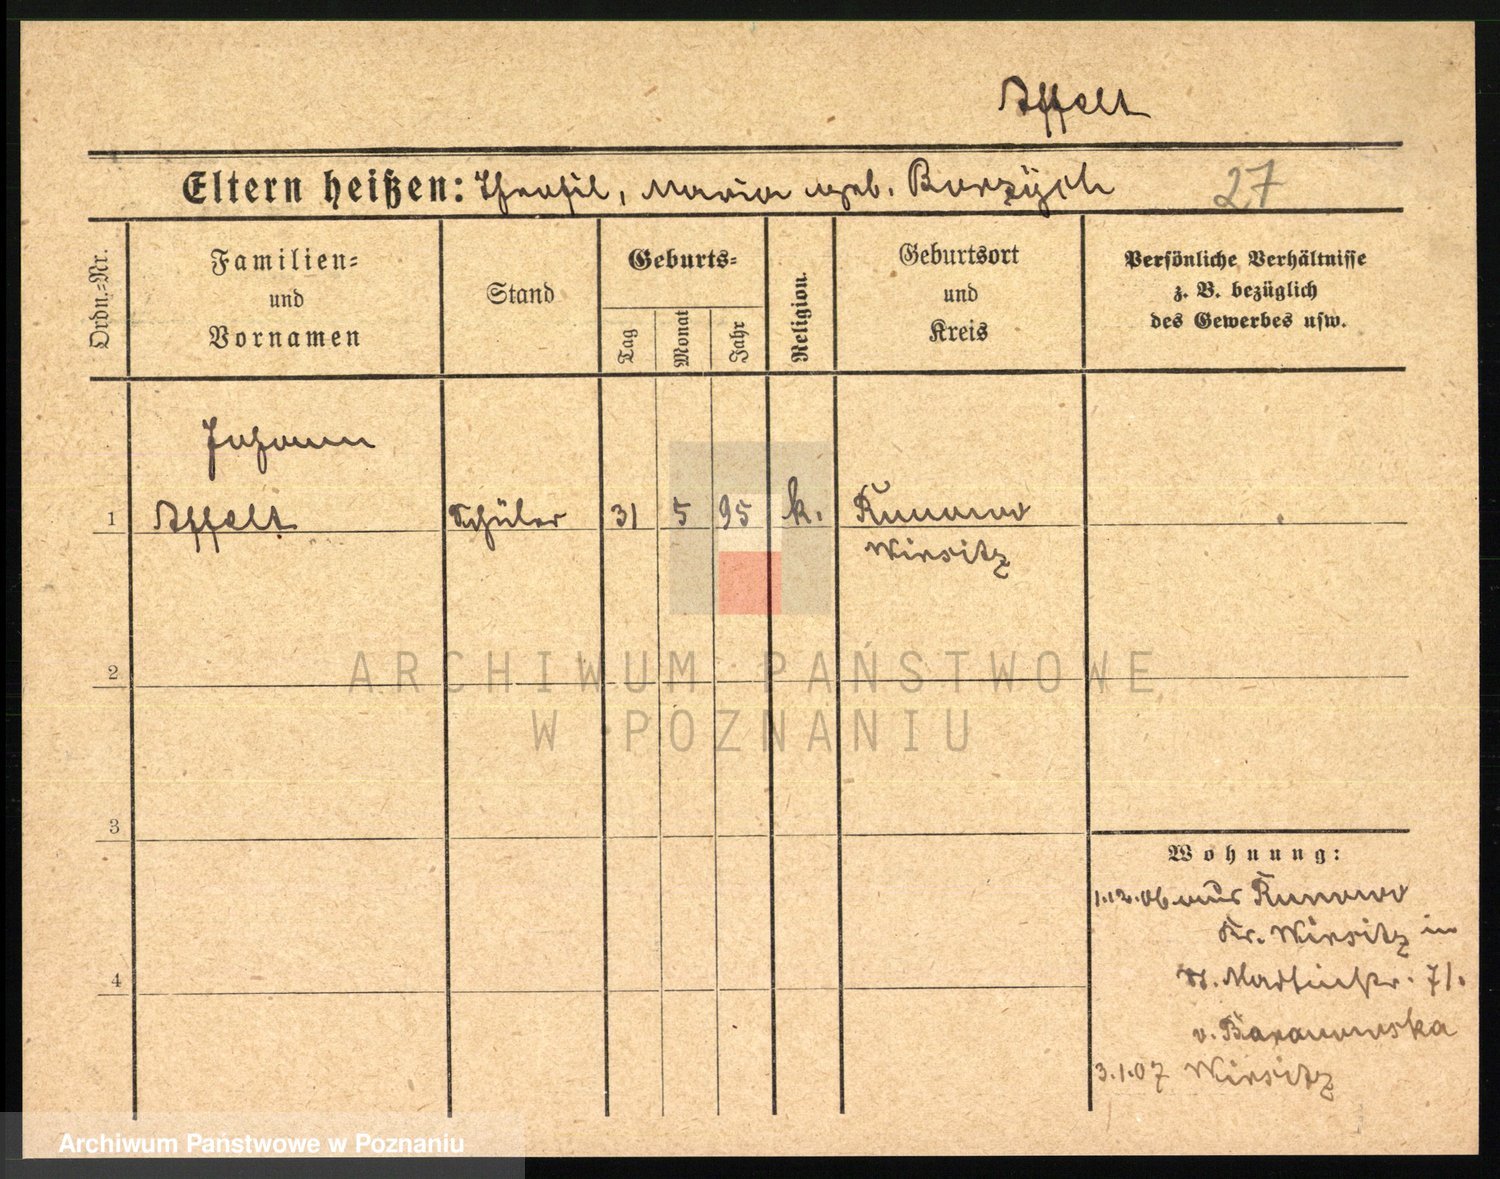 Affelt
Eltern heißen: Theofil, Maria geb. Borzych
27
Ordn.-Nr.
Familien-
und
Vornamen
Stand
Geburts-
Tag
Monat
Jahr
Religion.
Geburtsort
und
Kreis
Persönliche Verhältnisse
z. B. bezüglich
des Gewerbes usw.
Johann
1 Affelt Schüler 31 5 95 k. Runowo
Wirsitz
2
3
4
Wohnung:
1.12.06 aus Runowo
Kr. Wirsitz in
St. Martinstr. 71.
v. Baranowska
3.1.07 Wirsitz
ARCHIWUM PAŃSTWOWE
W POZNANIU
Archiwum Państwowe w Poznaniu